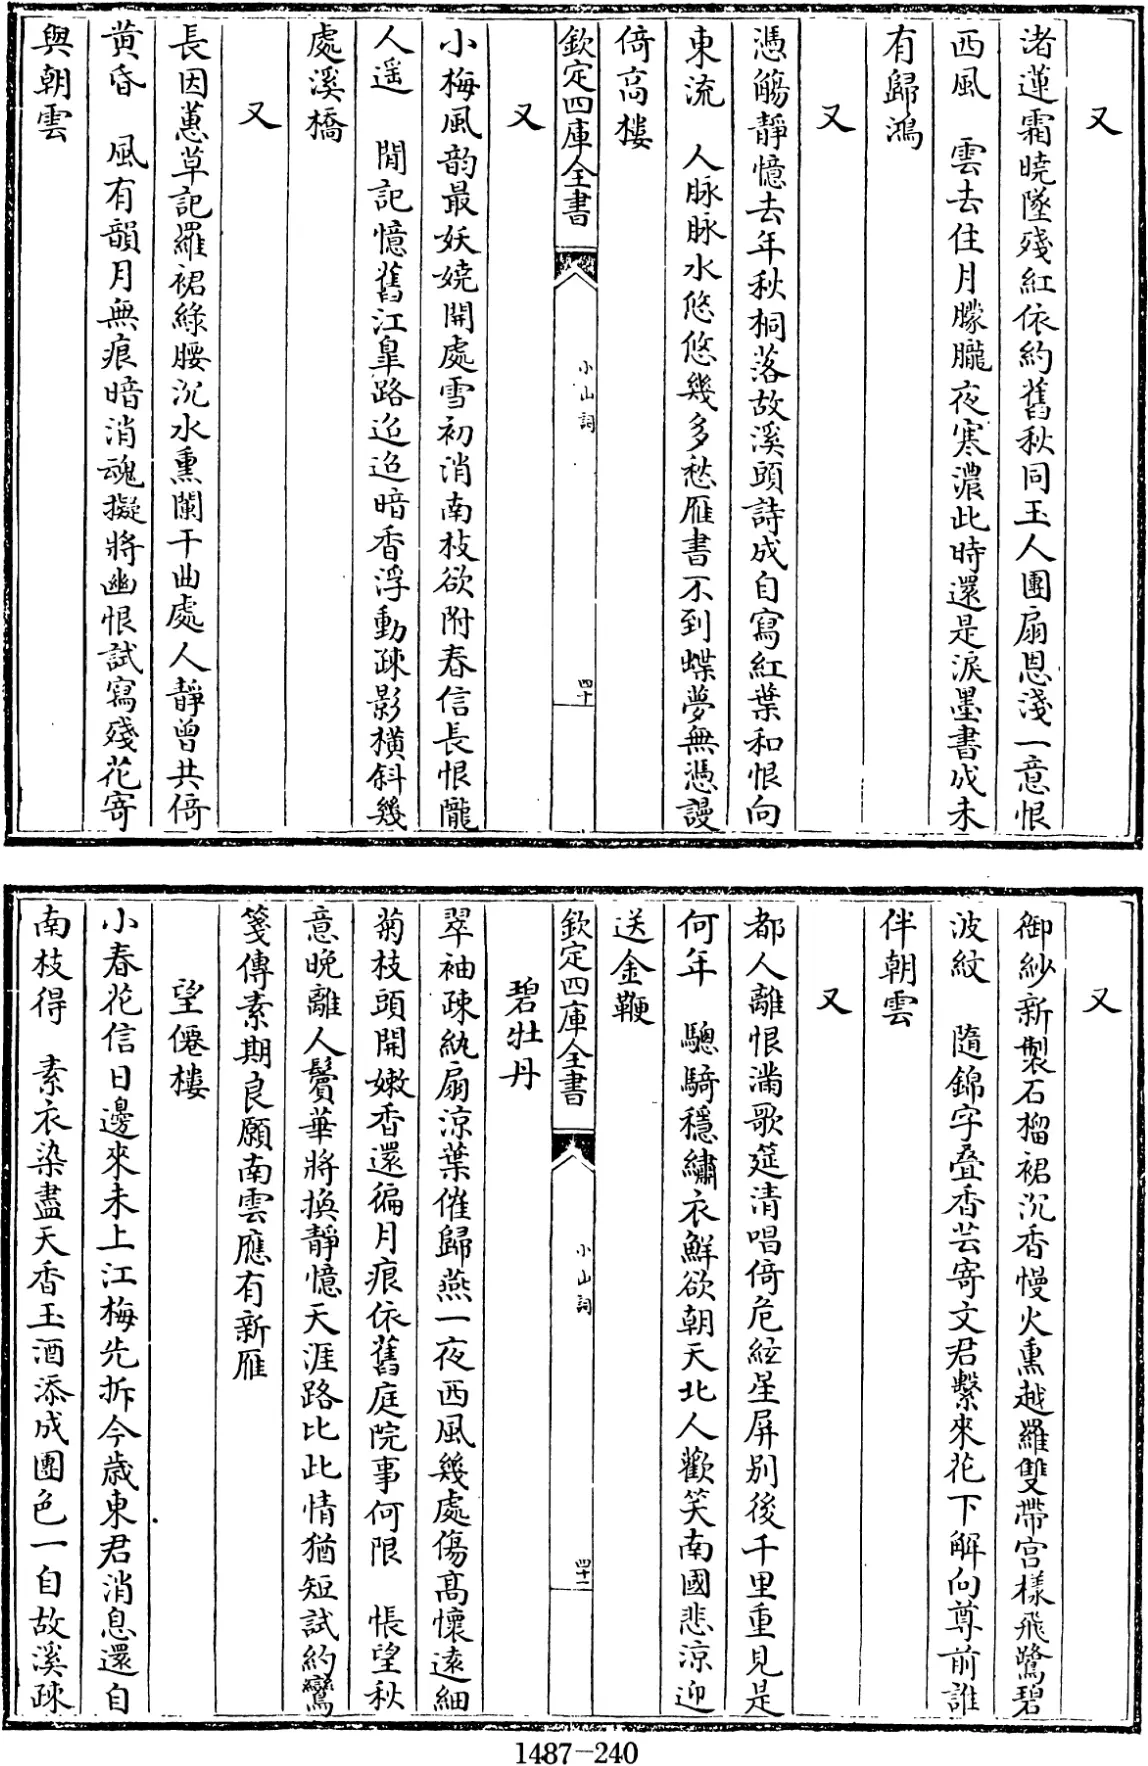 又
渚蓮霜曉墜殘紅依約舊秋同玉人團扇恩淺一意恨
西風　雲去住月朦朧夜寒濃此時還是淚墨書成未
有歸鴻
又
憑觴靜憶去年秋桐落故溪頭詩成自寫紅葉和恨向
東流　人脉脉水悠悠幾多愁雁書不到蝶夢無憑謾
倚高樓
欽定四庫全書
小山詞
四十
又
小梅風韵最妖嬈開處雪初消南枝欲附春信長恨隴
人遥　閒記憶舊江臯路迢迢暗香浮動疎影橫斜幾
處溪橋
又
長因蕙草記羅裙綠腰沉水熏闌干曲處人靜曾共倚
黄昏　風有韻月無痕暗消魂擬將幽恨試寫殘花寄
與朝雲
又
御紗新製石榴裙沉香慢火熏越羅雙帶宫樣飛鷺碧
波紋　隨錦字叠香芸寄文君繫來花下解向尊前誰
伴朝雲
又
都人離恨滿歌筵清唱倚危絃星屏别後千里重見是
何年　驄騎穩繡衣鮮欲朝天北人歡笑南國悲涼迎
送金鞭
欽定四庫全書
小山詞
四十一
碧牡丹
翠袖疎紈扇涼葉催歸燕一夜西風幾處傷髙懷遠細
菊枝頭開嫩香還徧月痕依舊庭院事何限　悵望秋
意晚離人鬢華將換靜憶天涯路比此情猶短試約鸞
箋傳素期良願南雲應有新雁
望僊樓
小春花信日邊來未上江梅先拆今歳東君消息還自
南枝得　素衣染盡天香玉酒添成團色一自故溪疎
1487-240